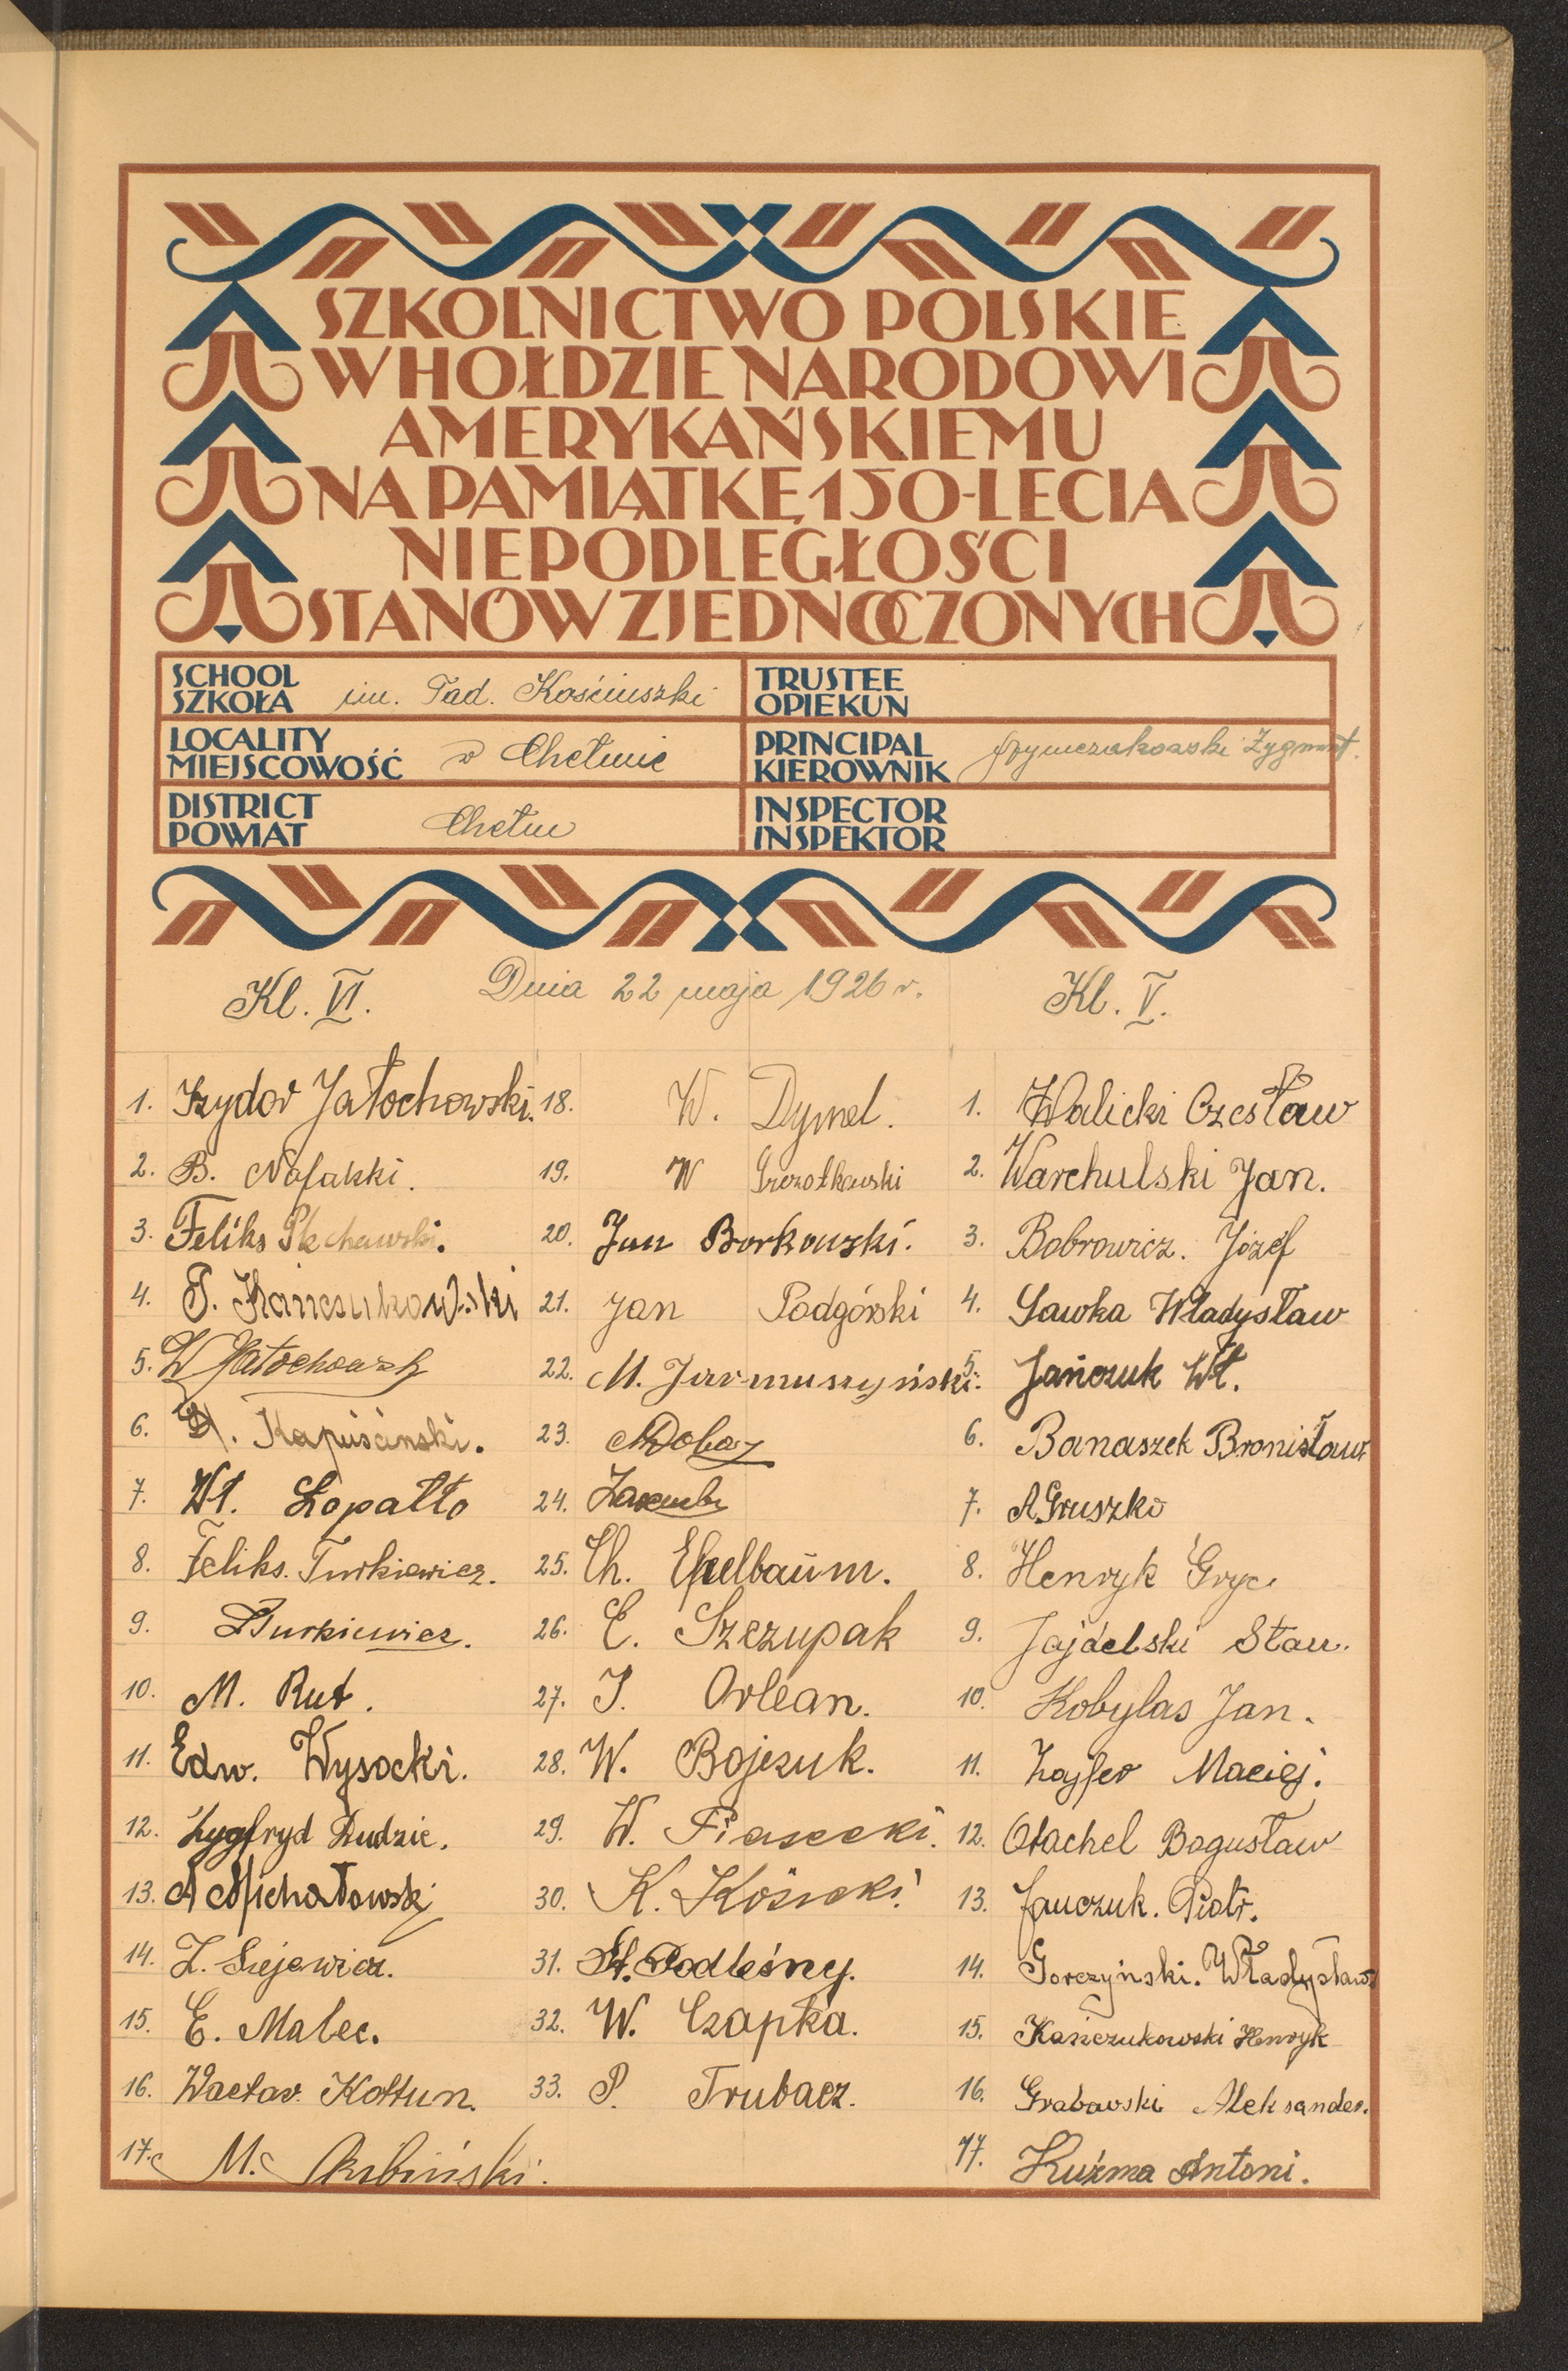 SZKOLNICTWO POLSKIE
W HOŁDZIE NARODOWI
AMERYKAŃSKIEMU
NA PAMIĄTKĘ 150-LECIA
NIEPODLEGŁOŚCI
STANÓW ZJEDNOCZONYCH
SCHOOL
SZKOŁA im. Tad. Kościuszki
TRUSTEE
OPIEKUN
LOCALITY
MIEJSCOWOŚĆ w Chełmie
PRINCIPAL
KIEROWNIK Zygmunt.
DISTRICT
POWIAT Chełm
INSPECTOR
INSPEKTOR
Kl. VI.
Dnia 22 maja 1926 r.
Kl. V.
1. Izydor Jałochowski.
2. B. Nafalski.
3. Feliks
4. T. Kańczukowski
5. W Jałochowski
6. Kapuściński.
7. Wł. Łopatto
8. Feliks. Turkiewicz.
9. Turkiewicz.
10. M. Rut.
11. Edw. Wysocki.
12. Zygfryd Dudzic.
13. A Michałowski
14. Z. Siejewicz.
15. E. Malec.
16. Wacław. Kołtun.
17. M.
18. W. Dymel.
19. W
20. Jan Borkowski.
21. Jan Podgórski
22. M. Jarmuszyński.
23.
24. Zaremba
25. Ch. Ejzelbaum.
26. E. Szczupak
27. J. Orlean.
28. W. Bojczuk.
29. W. Piasecki.
30. K. Kósicki
31. St. Podleśny.
32. W. Czapka.
33. P. Trubacz.
1. Walicki Czesław
2. Warchulski Jan.
3. Bobrowicz. Józef
4. Sawka Władysław
5. Jańczuk Wł.
6. Banaszek Bronisław
7. A Gruszko
8. Henryk Gryc
9. Jajdelski Stan.
10. Kobylas Jan.
11. Zajfer Maciej.
12. Otachel Bogusław
13. Jańczuk. Piotr.
14. Gorczyński. Władysław
15. Kańczukowski Henryk
16. Grabowski Aleksander.
17. Kuźma Antoni.